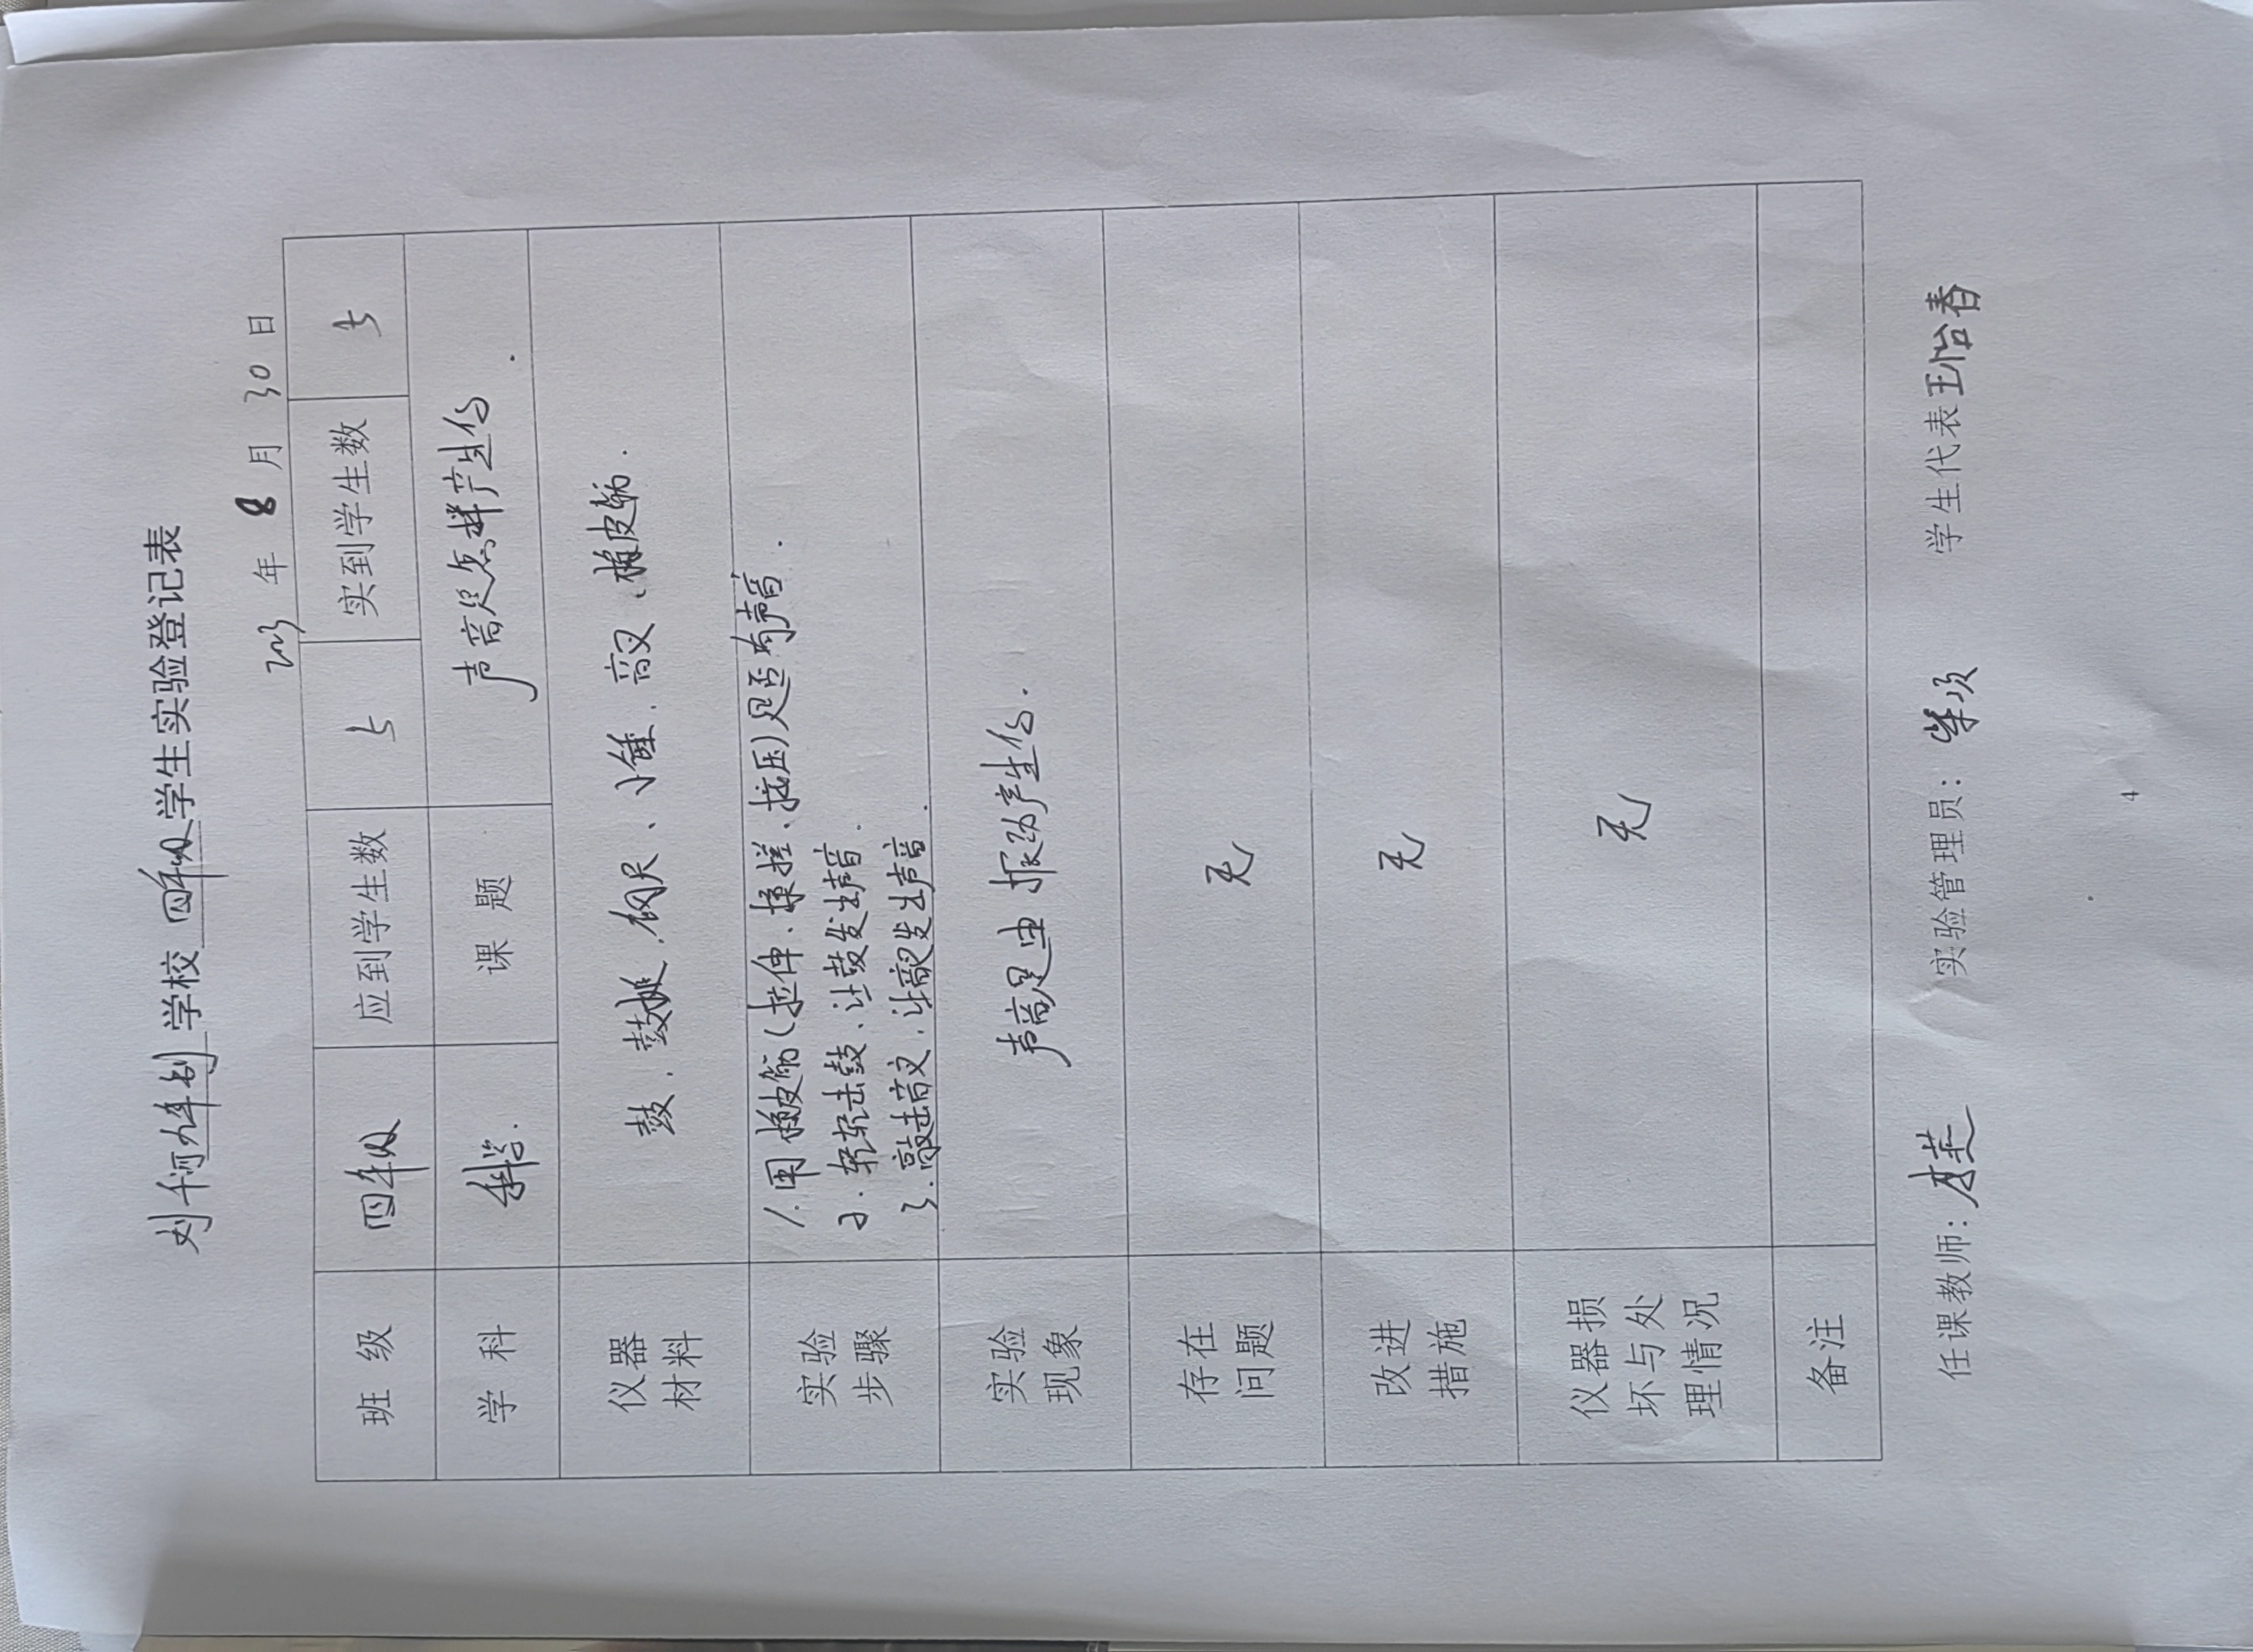 刘千河九年制学校四年级学生实验登记表
2023年8月30日
班级 四年级 应到学生数 5 实到学生数 5
学科 科学. 课题 声音是怎样产生的.
仪器材料 鼓、鼓槌、钢尺、小锤、音叉、橡皮筋.
实验步骤 1.用橡皮筋(拉伸、揉搓、按压)是否有声音.
2.轻轻击鼓,让鼓发出声音.
3.敲击音叉,让音叉发出声音.
实验现象 声音是由振动产生的.
存在问题 无
改进措施 无
仪器损坏与处理情况 无
备注
任课教师: 实验管理员: 学生代表 王怡春
4